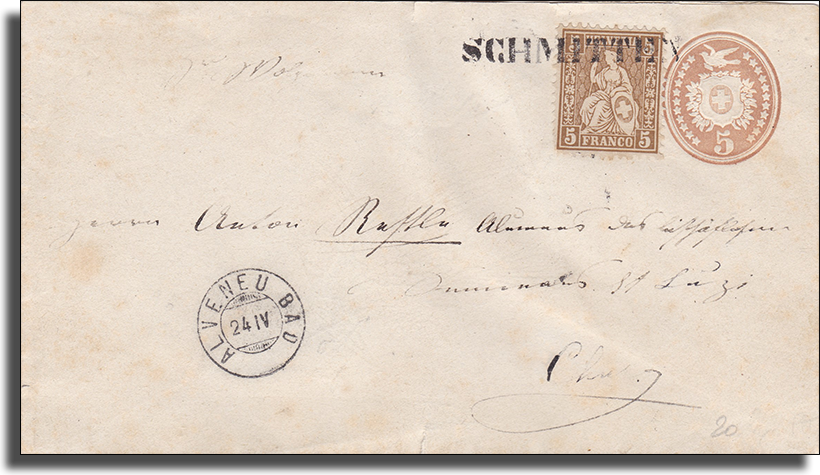 SCHMITTEN
5 FRANCO 5
5
Herrn Anton Alumnus des bischöflichen
Seminars St Luzi
ALVENEU BAD
24 IV
Chur
20